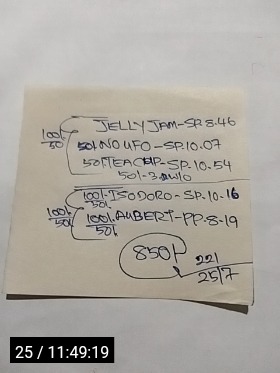 JELLY JAM-SP.8.46
100/-
50
50/-NOUFO-SP.10.07
50/-TEACHP-SP.10.54
50/-3.0W10
100/-ISODORO-SP.10-16
50/-
100/-
50/-
100/-AUBERT-PP-8-19
50/-
850/-
221
25/7
25 / 11:49:19